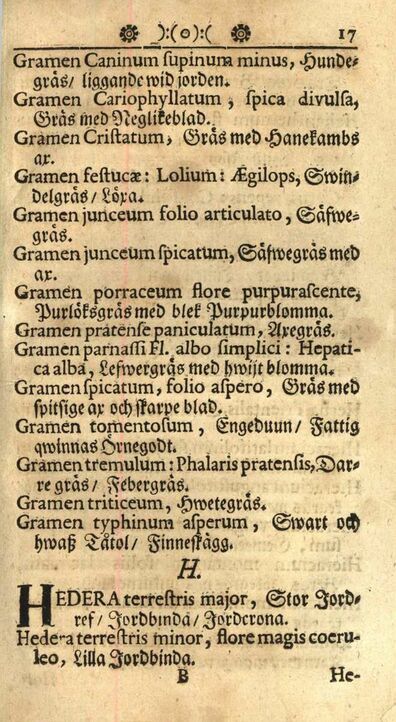 ):(o):( 17
Gramen Caninum supinum minus, Hunde-
gräs/ liggande wid jorden.
Gramen Cariophyllatum, spica divulsa,
Gräs med Neglikeblad.
Gramen Cristatum, Gräs med Hanekambs
ax.
Gramen festucæ: Lolium: Ægilops, Swin-
delgräs/ Löxa.
Gramen junceum folio articulato, Säfwe-
gräs.
Gramen junceum spicatum, Säfwegräs med
ax.
Gramen porraceum flore purpurascente,
Purlöksgräs med blek Purpurblomma.
Gramen pratense paniculatum, Axegräs.
Gramen parnassi Fl. albo simplici: Hepati-
ca alba, Lefwergräs med hwijt blomma.
Gramen spicatum, folio aspero, Gräs med
spitsige ax och skarpe blad.
Gramen tomentosum, Engeduun/ Fattig
qwinnas Örnegodt.
Gramen tremulum: Phalaris pratensis, Dar-
re gräs/ Febergräs.
Gramen triticeum, Hwetegräs.
Gramen typhinum asperum, Swart och
hwaß Tåtol/ Finneskägg.
H.
HEDERA terrestris major, Stor Jord-
ref/ Jordbinda/ Jordcrona.
Hedera terrestris minor, flore magis coeru-
leo, Lilla Jordbinda.
B He-